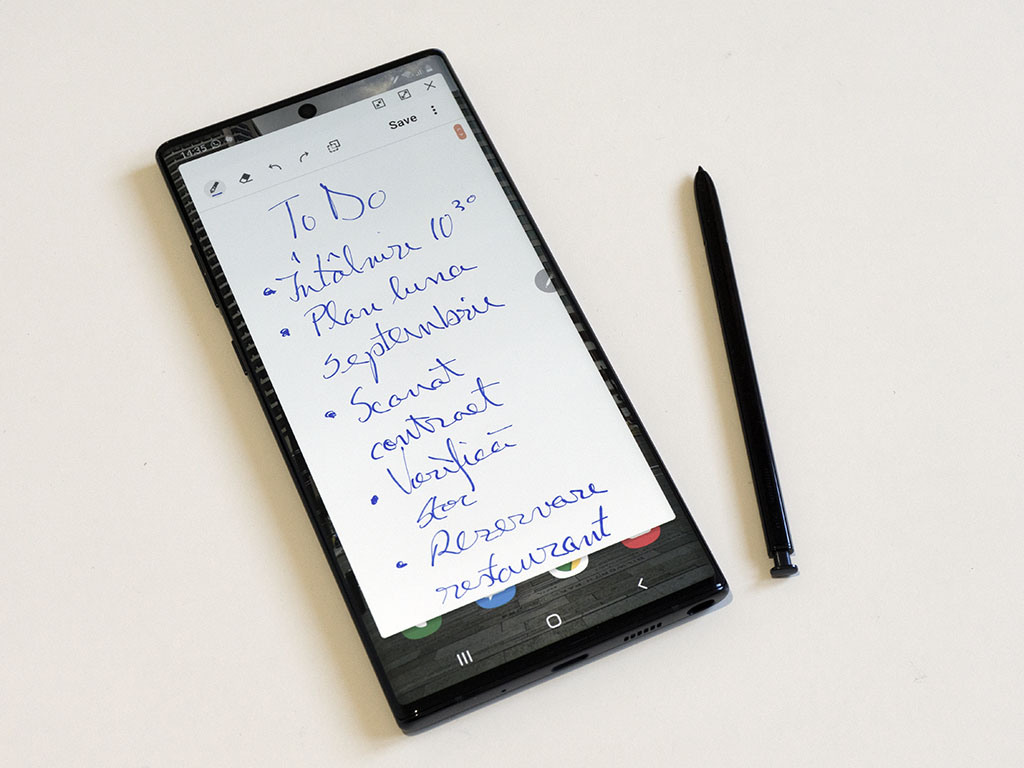 14:35
Save
To Do
• Întâlnire 10³⁰
• Plan luna
septembrie
• Scanat
contract
• Verifică
stoc
• Rezervare
restaurant